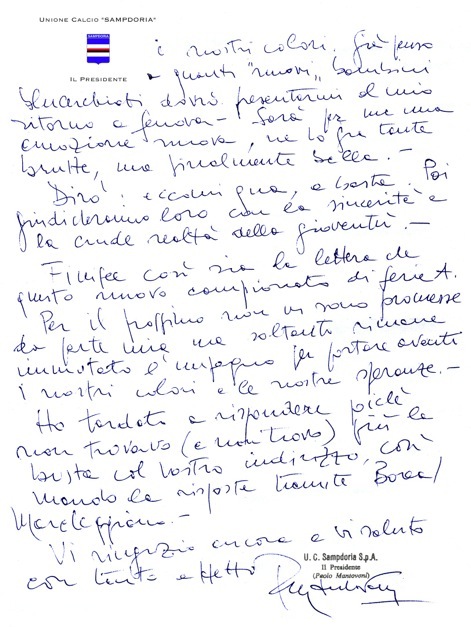 UNIONE CALCIO "SAMPDORIA"
SAMPDORIA
IL PRESIDENTE
i nostri colori. Già penso
a quanti "nuovi" bambini
blucerchiati dovrò presentarmi al mio
ritorno a Genova - Sarà per me una
emozione nuova, ne ho fra tante
brutte, una finalmente bella. -
Dirò: eccomi qua, e basta. Poi
giudicheranno loro con la sincerità e
la crude realtà della gioventù. -
Finisce così sia la lettera che
questo nuovo campionato di serie A.
Per il prossimo non vi sono promesse
da parte mia ma soltanto rimane
immutato l'impegno per portare avanti
i nostri colori e le nostre speranze. -
Ho tardato a rispondere poichè
non trovavo (e non trovo) più la
busta col vostro indirizzo, così
mando la risposta tramite Borea/
Vi ringrazio ancora e vi saluto
con tanto affetto
U. C. Sampdoria S.p.A.
Il Presidente
(Paolo Mantovani)